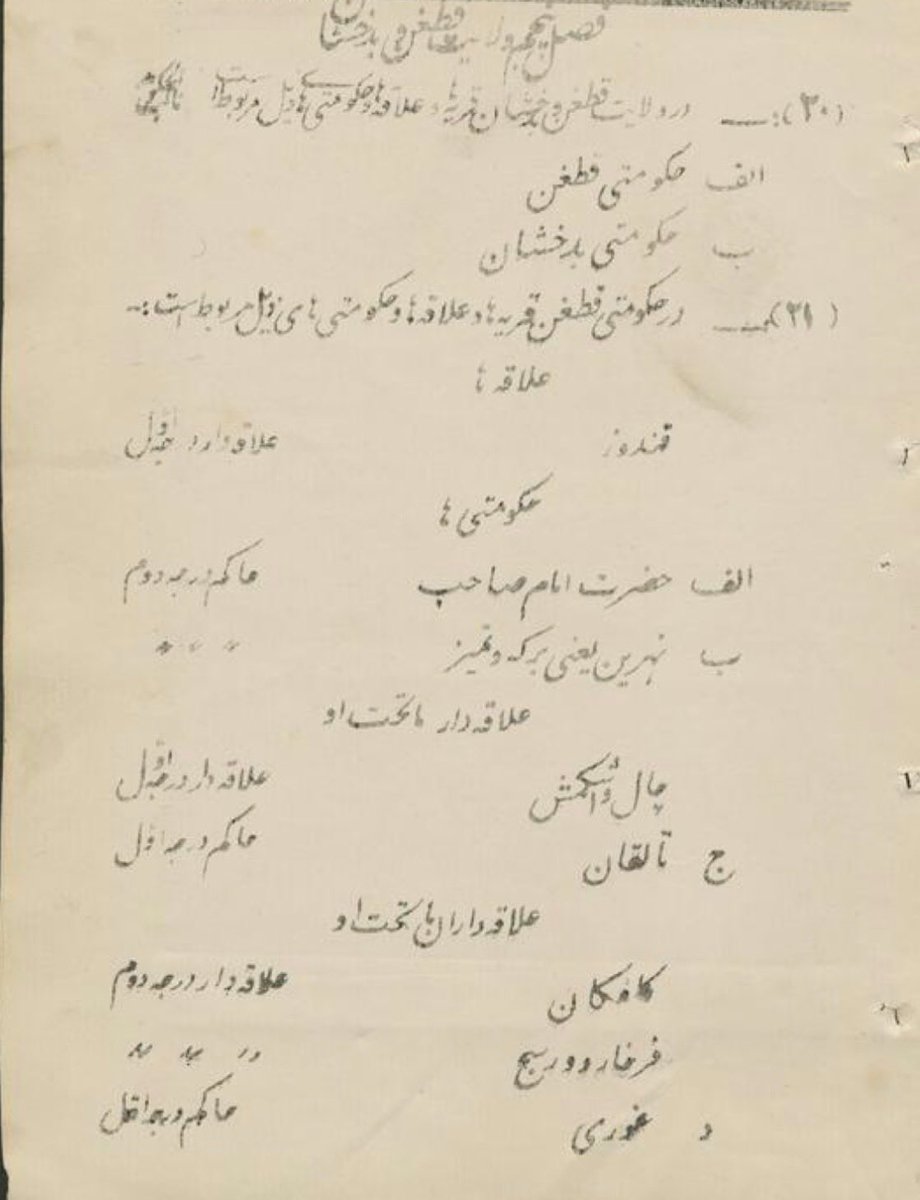 فصل پنجم ولایت قطغن و بدخشان
(۳۰):— در ولایت قطغن و بدخشان قریه ها و علاقه ها و حکومتی های ذیل مربوط است
الف حکومتی قطغن
ب حکومتی بدخشان
(۳۱):— در حکومتی قطغن قریه ها و علاقه ها و حکومتی های ذیل مربوط است:-
علاقه ها
قندوز علاقه دار درجه اول
حکومتی ها
الف حضرت امام صاحب حاکم درجه دوم
ب نهرین یعنی برکه و " " "
علاقه دار ماتحت او
چال و اشکمش علاقه دار درجه اول
ج تالقان حاکم درجه اول
علاقه داران ماتحت او
کافکان علاقه دار درجه دوم
فرخار و ورسج " " "
د غوری حاکم درجه اول